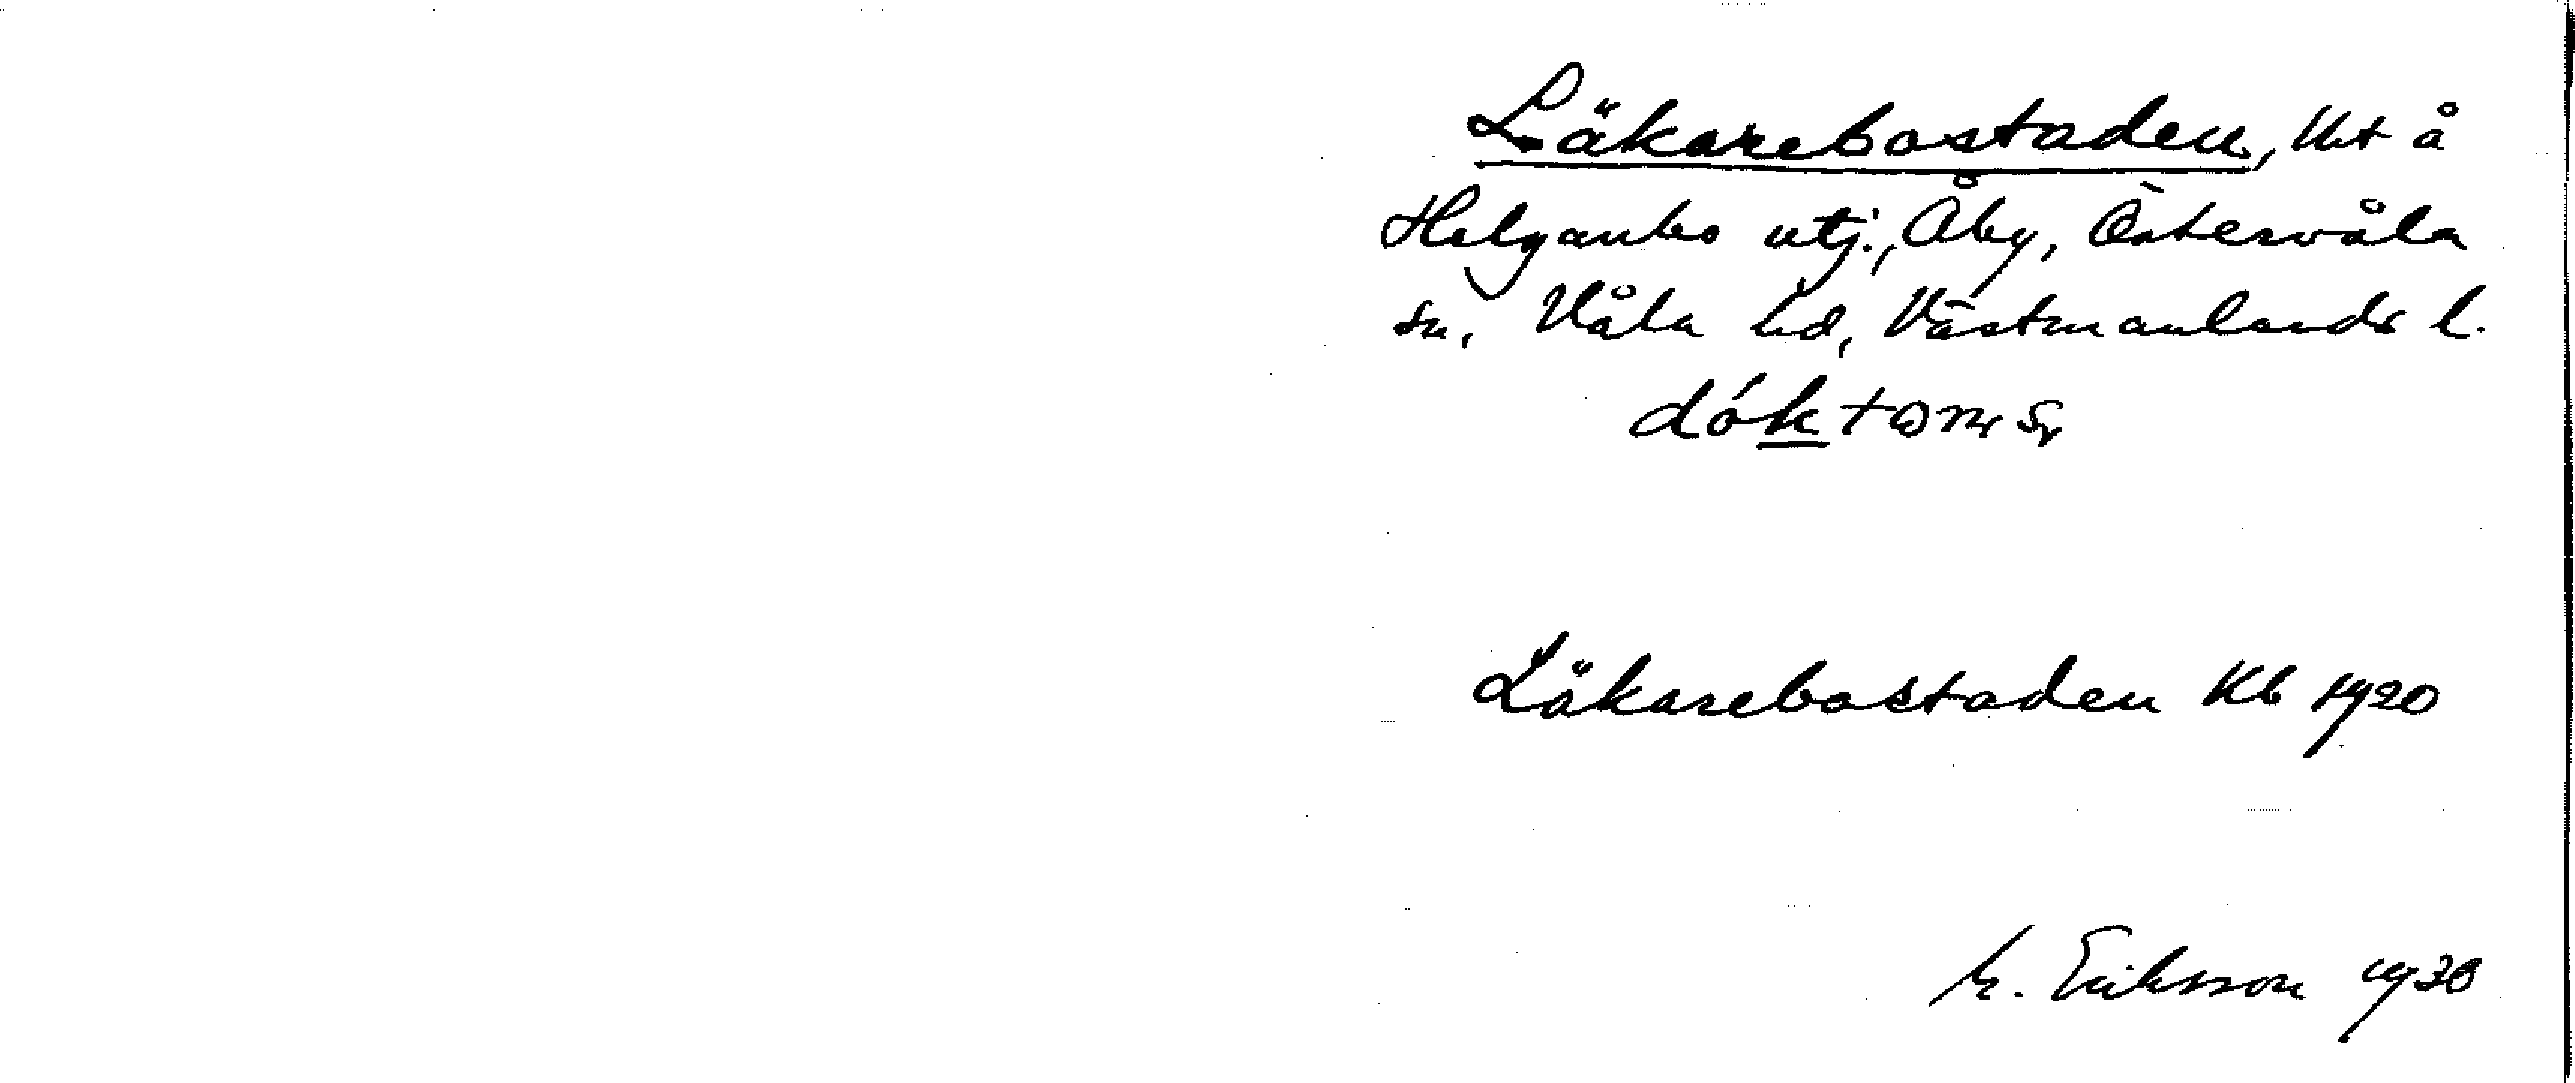 Läkarebostaden, Uht å
Helganbo utj., Åby, Östervåla
sn, Våla hd, Västmanlands l.
dóktorns
Läkarebostaden Kb 1920
M. Eriksson 1930